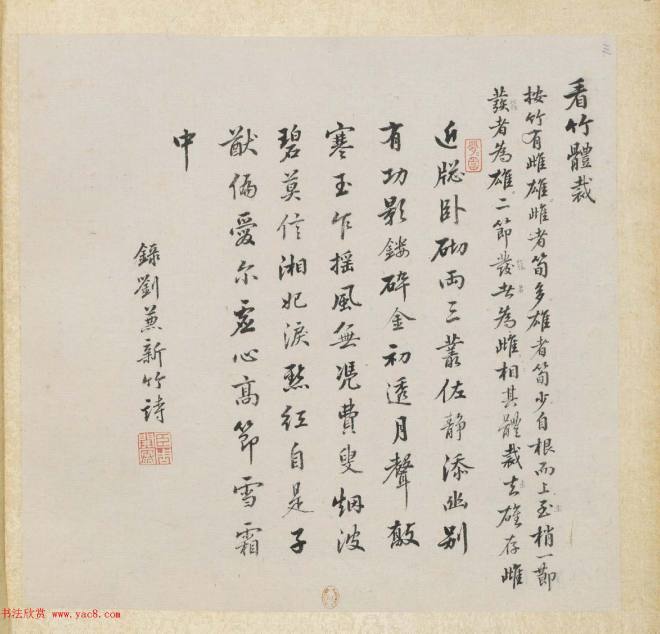 三
看竹體裁
按竹有雌雄雌者筍多雄者筍少自根而上至梢一節
發者為雄二節發者為雌相其體裁去雄存雌
近牕卧砌兩三叢佐靜添幽别
有功影鏤碎金初透月聲敲
寒玉乍搖風無凴費叟烟波
碧莫信湘妃淚㸃紅自是子
猷偏愛尓虛心高節雪霜
中
錄劉兼新竹詩
书法欣赏 www.yac8.com